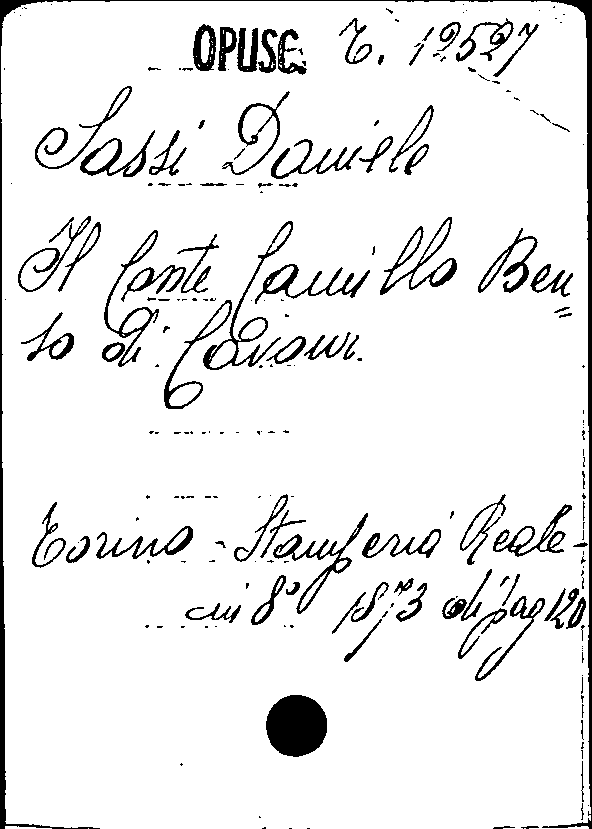 OPUSC. T. 12527
Sassi Daniele
Il Conte Camillo Ben=
so di Cavour.
Torino - Stamperia Reale -
in 8° 1873 di pag 120